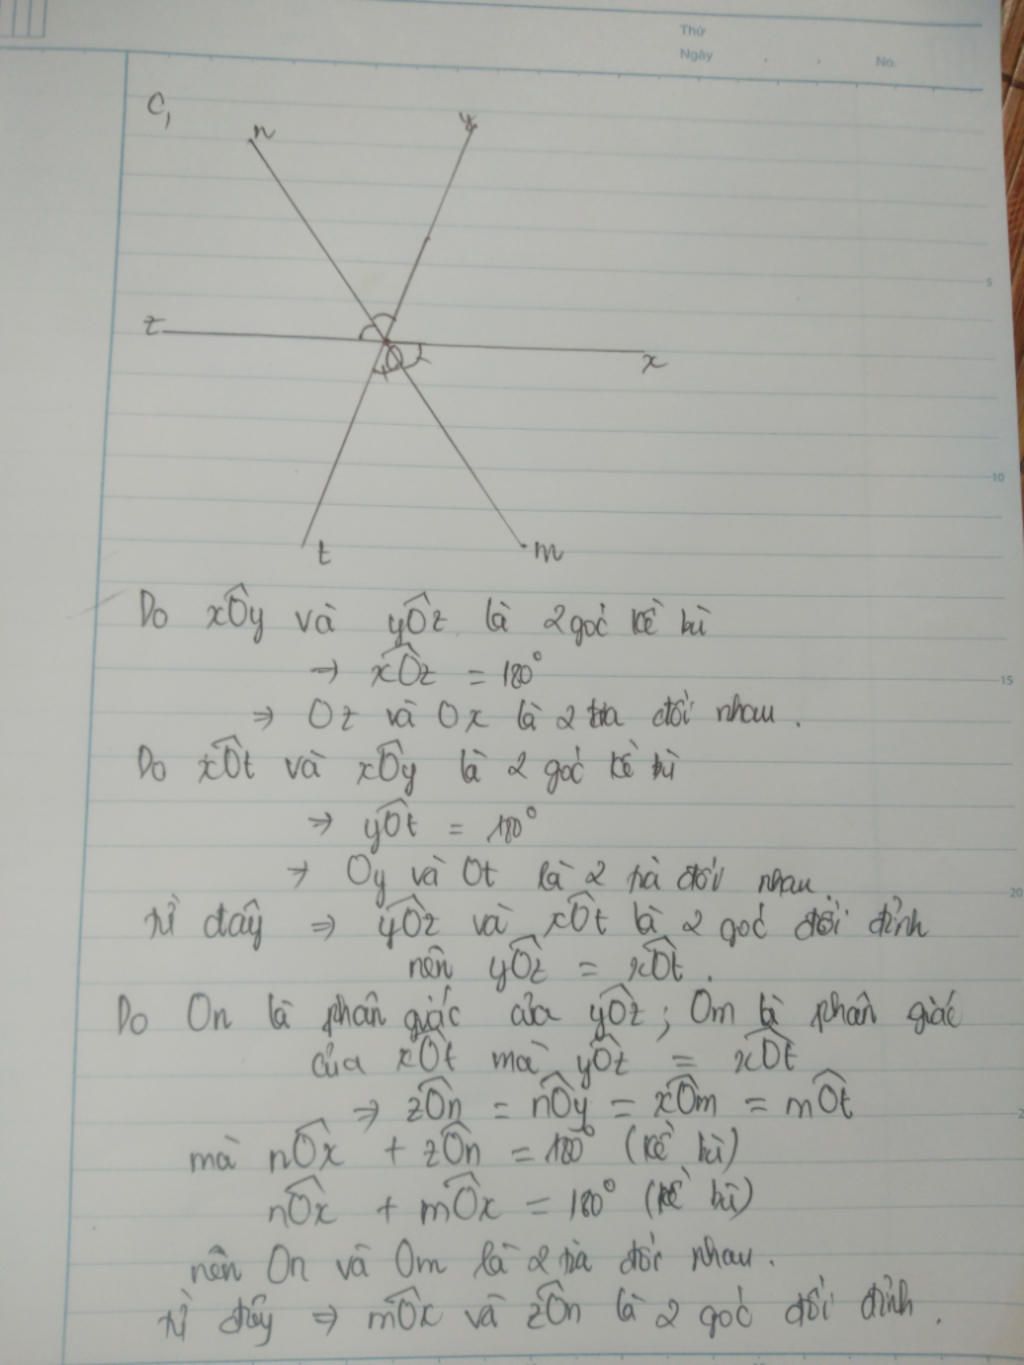 Thứ
Ngày . . No.
C,
n
y
z
x
O
t
m
5
10
15
20
Do xÔy và yÔz là 2 góc kề bù
→ xÔz = 180°
⇒ Oz và Ox là 2 tia đối nhau.
Do xÔt và xÔy là 2 góc kề bù
⇒ yÔt = 180°
⇒ Oy và Ot là 2 tia đối nhau.
từ đây ⇒ yÔz và xÔt là 2 góc đối đỉnh
nên yÔz = xÔt.
Do On là phân giác của yÔz; Om là phân giác
của xÔt mà yÔz = xÔt
⇒ zÔn = nÔy = xÔm = mÔt
mà nÔx + zÔn = 180° (kề bù)
nÔx + mÔx = 180° (kề bù)
nên On và Om là 2 tia đối nhau.
từ đây ⇒ mÔx và zÔn là 2 góc đối đỉnh.